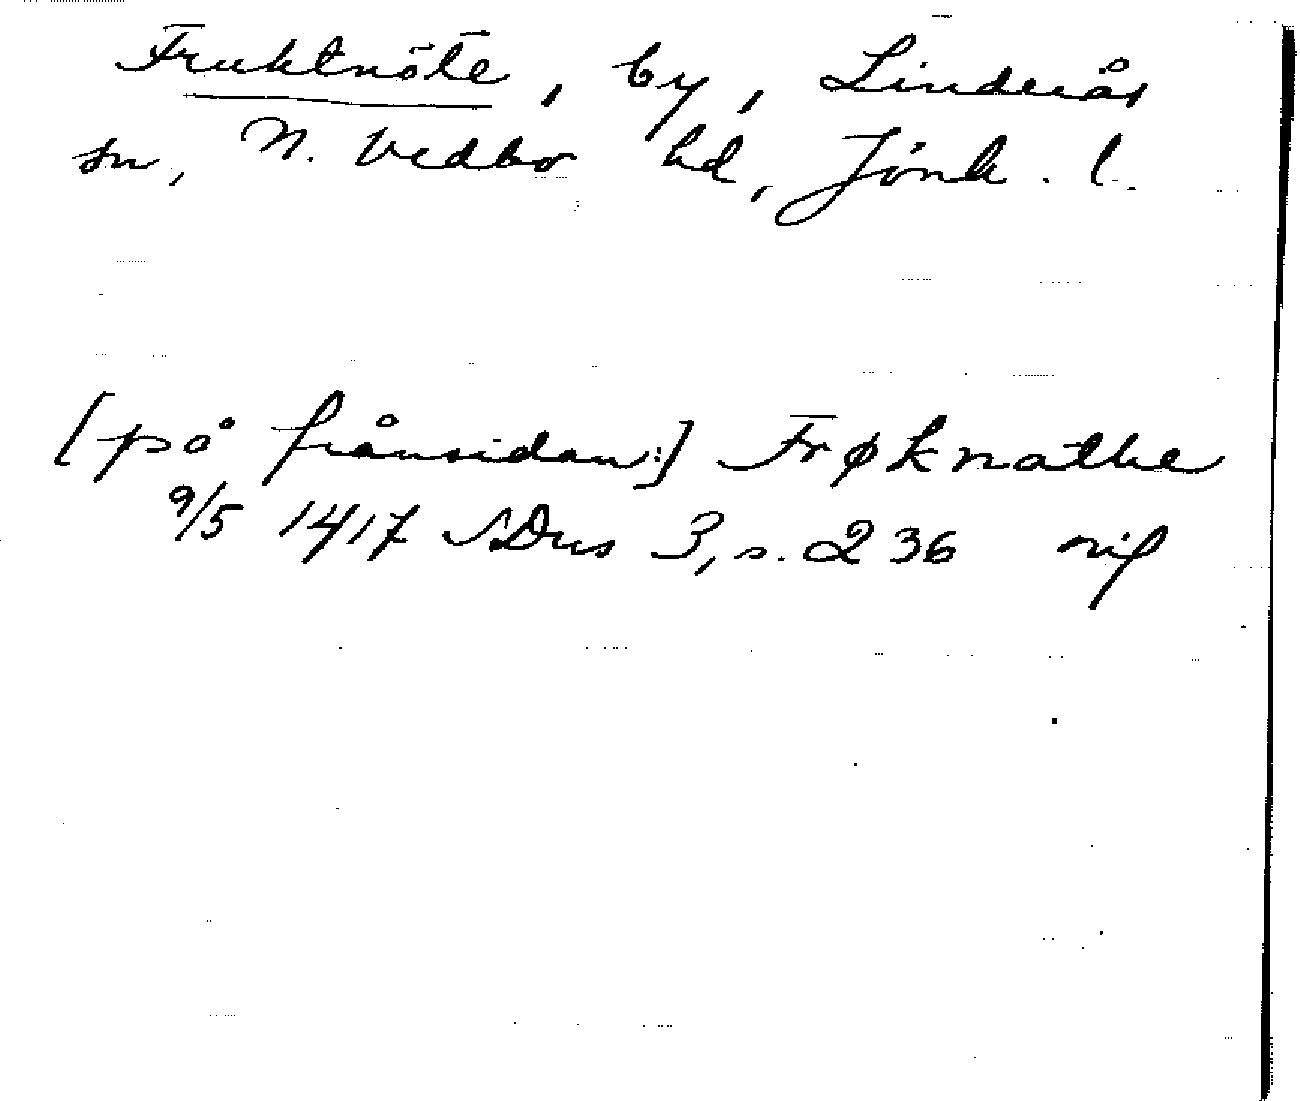 Fruktnöte, by, Linderås
sn, N. Vedbo hd, Jönk. l.
[på frånsidan:] Frøknathe
9/5 1417 SDns 3, s. 236